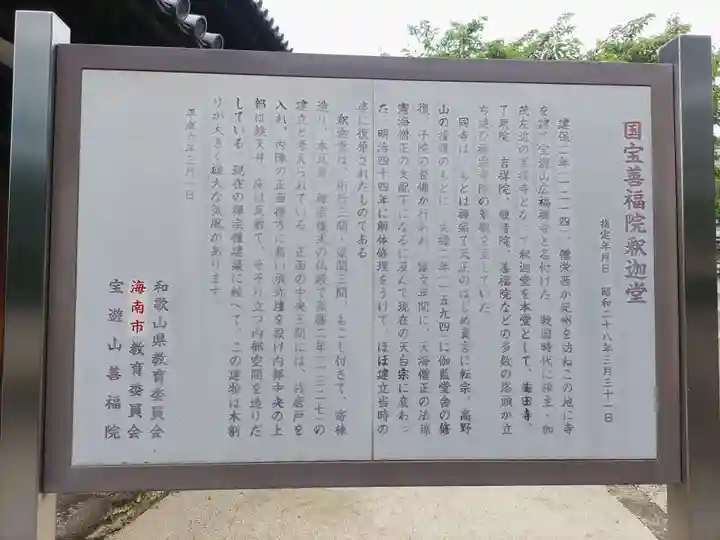 国宝善福院釈迦堂
指定年月日 昭和二十八年三月三十一日
建保二年(一二一四)、僧栄西が紀州を訪ねこの地に寺
を建て宝遊山広福禅寺と名付けた。戦国時代に領主・加
茂左近の菩提寺となって釈迦堂を本堂として、
了院、吉祥院、観音院、善福院などの多数の塔頭が立
ち並び
同寺は、もとは禅宗で天正のはじめ真言に転宗、高野
山の
のもとに、文禄二年(一五九四)に伽藍堂舎の修
復、子院の整備が行われ、寛文年間に、天海僧正の法源
憲海僧正の支配下になるに及んで現在の天台宗に変わっ
た。明治四十四年に解体修理をうけて、ほぼ建立当時の
姿に復原されたものである
釈迦堂は、桁行三間・梁間三間、もこし付きで、寄棟
造り、本瓦葺、禅宗様式の仏殿で嘉暦二年(一三二七)の
建立と考えられている。正面の中央三間には、桟唐戸を
入れ、内陣の正面後方に高い須弥壇を設け内部中央の上
部は鏡天井、床は瓦敷で、そそり立つ内部空間を造りだ
している。現在の禅宗様建築に較べて、この建物は木割
りが大きく雄大な気風があります
平成六年三月一日
和歌山県教育委員会
海南市教育委員会
宝遊山善福院